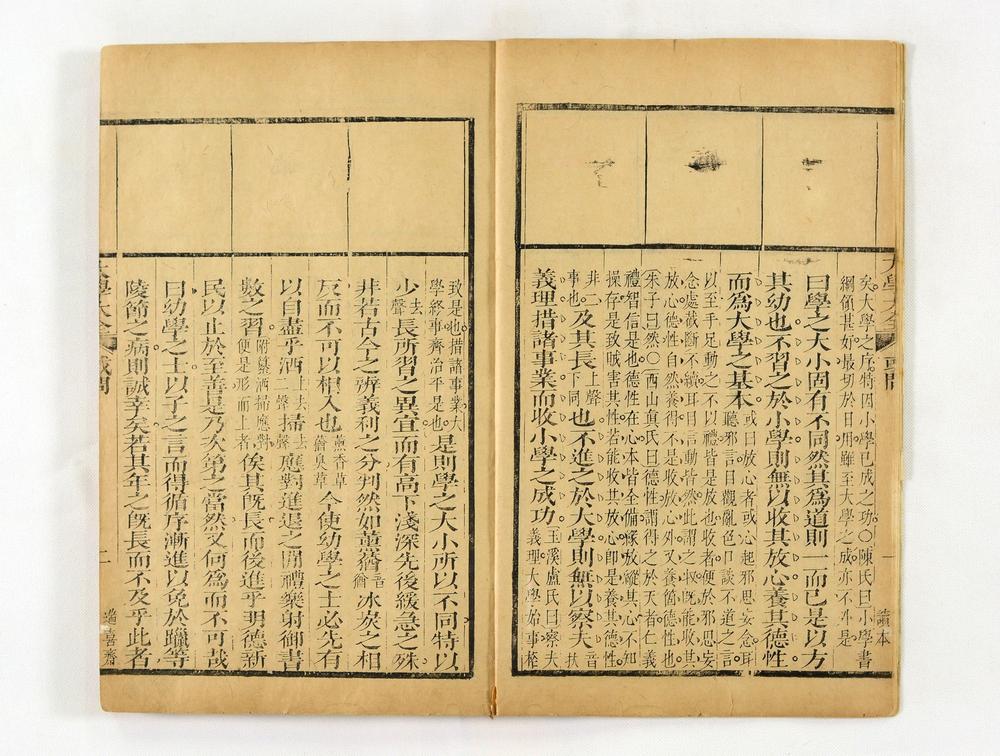 大學大全 或問 讀本
矣大學之序特因小學已成之功○陳氏曰小學書
綱領甚好最切於日用雖至大學之成亦不外是
曰學之大小固有不同然其爲道則一而已是以方
其幼也不習之於小學則無以收其放心養其德性
而爲大學之基本 或曰放心者或心起邪思妄念耳
聽邪言目觀亂色口談不道之言
以至手足動之不以禮皆是放也收者便於邪思妄
念處截斷不續耳目言動皆然此謂之收旣能收其
放心德性自然養得不是收放心外又養箇德性也
朱子曰然○西山眞氏曰德性謂得之於天者仁義
禮智信是也德性在心本皆全備緣放縱其心不知
操存是致賊害其性若能收其放心即是養其德性
非二事也。及其長上聲下同也不進之於大學則無以察夫音扶
義理措諸事業而收小學之成功 玉溪盧氏曰察夫
義理大學始事格
致是也措諸事業大
學終事齊治平是也 是則學之大小所以不同特以
少去聲長所習之異宜而有高下淺深先後緩急之殊
非若古今之辨義利之分判然如薰蕕音猶冰炭之相
反而不可以相入也薰香草蕕臭草今使幼學之士必先有
以自盡乎洒上去二聲掃去聲應對進退之閒禮樂射御書
數之習附纂洒掃應對便是形而上者俟其旣長而後進乎明德新
民以止於至善是乃次第之當然又何爲而不可哉
曰幼學之士以子之言而得循序漸進以免於躐等
陵節之病則誠幸矣若其年之旣長而不及乎此者
大學大全 或問 喜齋